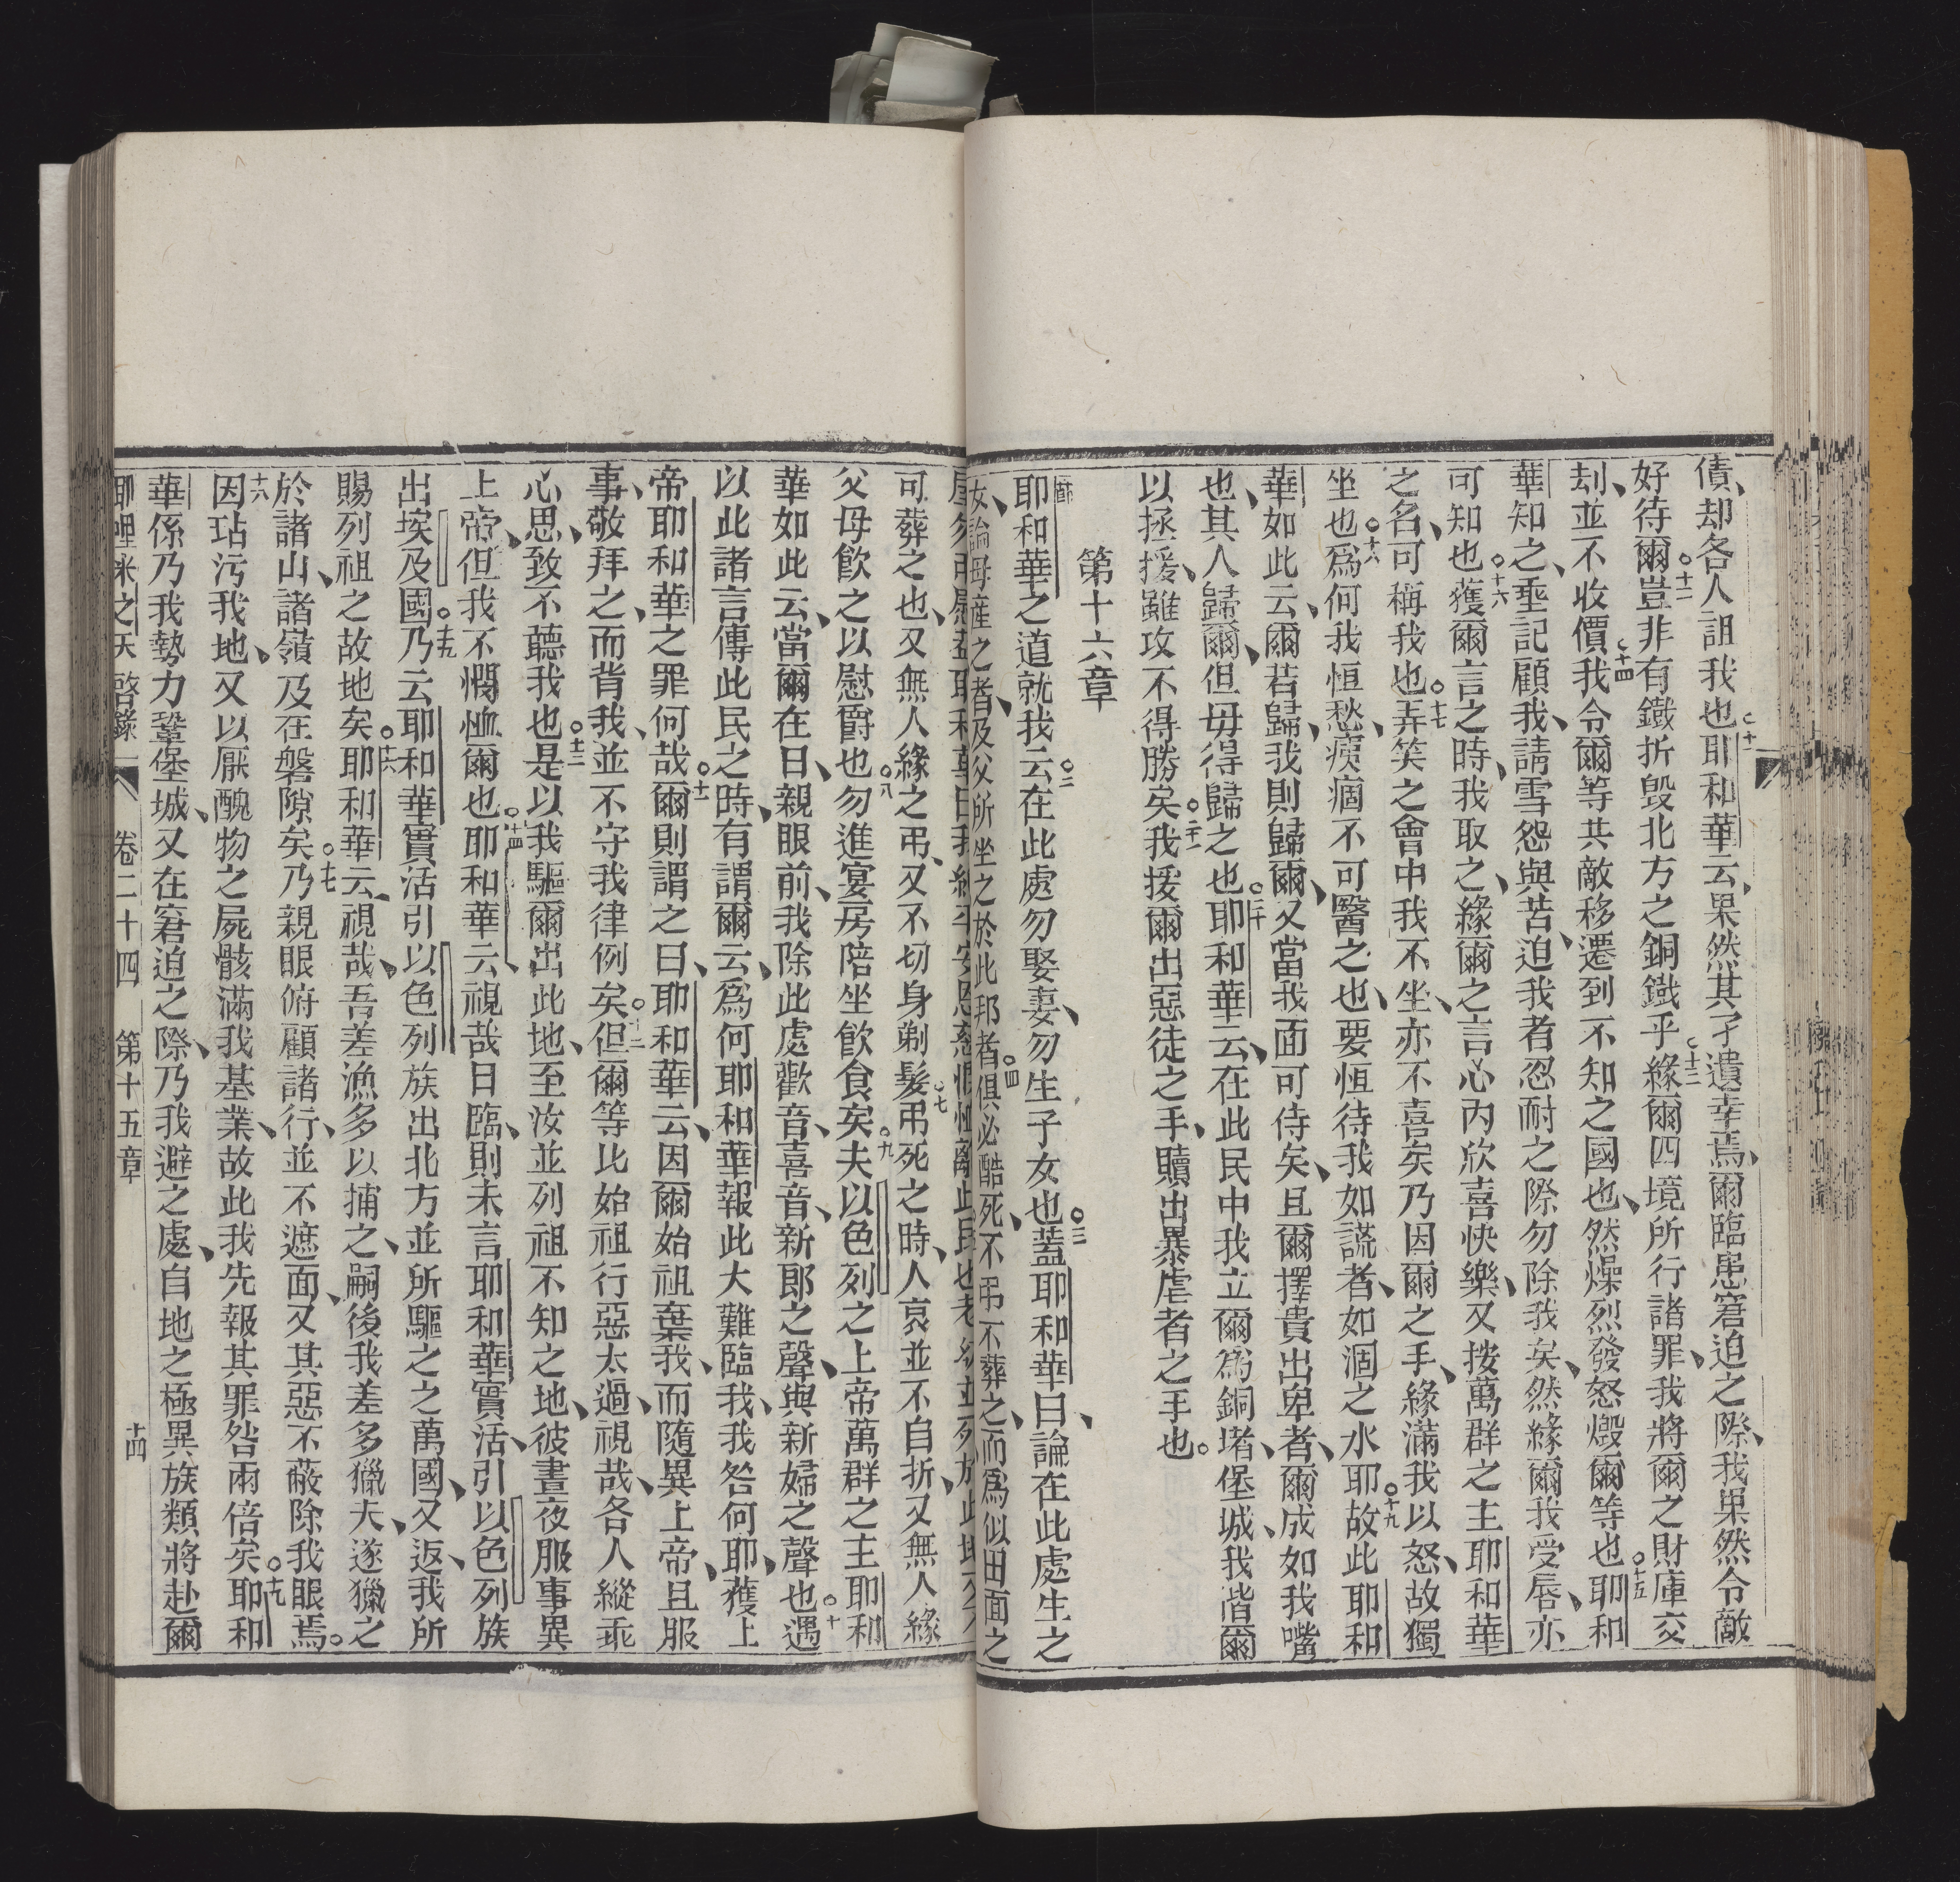 債、却各人詛我也○十一耶和華云、果然其孑遺幸焉、爾臨患窘迫之際、我果然令敵
好待爾○十二豈非有鐵折毀北方之銅鐵乎○十三緣爾四境所行諸罪、我將爾之財庫交
刦、並不收價○十四我令爾等共敵移遷到不知之國也、然燥烈發怒燬爾等也○十五耶和
華知之、垂記顧我、請雪怨與苦迫我者、忍耐之際勿除我矣、然緣爾我受辱、亦
可知也○十六獲爾言之時、我取之、緣爾之言心內欣喜快樂、又按萬群之主耶和華
之名、可稱我也○十七弄笑之會中我不坐、亦不喜矣、乃因爾之手、緣滿我以怒、故獨
坐也○十八爲何我恒愁、痍痼不可醫之也、要恒待我如謊者、如涸之水耶○十九故此耶和
華如此云、爾若歸、我則歸爾、又當我面可侍矣、且爾擇貴出卑者、爾成如我嘴
也、其人歸爾、但毋得歸之也○二十耶和華云、在此民中我立爾爲銅堵、堡城、我偕爾
以拯援、雖攻不得勝矣○二十一我援爾出惡徒之手、贖出暴虐者之手也。
第十六章
一節耶和華之道就我云○二在此處勿娶妻、勿生子女也○三蓋耶和華曰、論在此處生之
女、論母產之者、及父所坐之於此邦者○四俱必酷死、不弔不葬之、而爲似田面之
可葬之也、又無人緣之弔、又不切身剃髮○七弔死之時、人哀並不自折、又無人緣
父母飲之以慰爵也○八勿進宴房陪坐飲食矣○九夫以色列之上帝萬群之主耶和
華如此云、當爾在日、親眼前、我除此處歡音、喜音、新郎之聲、與新婦之聲也○十遇
以此諸言傳此民之時、有謂爾云、爲何耶和華報此大難臨我、我咎何耶、獲上
帝耶和華之罪何哉○十一爾則謂之曰、耶和華云、因爾始祖棄我、而隨異上帝、且服
事、敬拜之、而背我、並不守我律例矣○十二但爾等比始祖行惡太過、視哉、各人縱乖
心思、致不聽我也○十三是以我驅爾出此地、至汝並列祖不知之地、彼晝夜服事異
上帝、但我不憫恤爾也○十四耶和華云、視哉日臨、則未言耶和華實活、引以色列族
出埃及國○十五乃云耶和華實活引以色列族出北方並所驅之之萬國、又返、我所
賜列祖之故地矣○十六耶和華云、視哉、吾差漁多以捕之、嗣後我差多獵夫、遂獵之
於諸山、諸嶺及在磐隙矣○十七乃親眼俯顧諸行、並不遮面、又其惡不蔽除我眼焉。
十八因玷污我地、又以厭醜物之屍骸滿我基業、故此我先報其罪咎兩倍矣○十九耶和
華係乃我勢力鞏堡城、又在窘迫之際、乃我避之處、自地之極異族類將赴爾
耶哩米之天啓錄 卷二十四 第十五章 十四